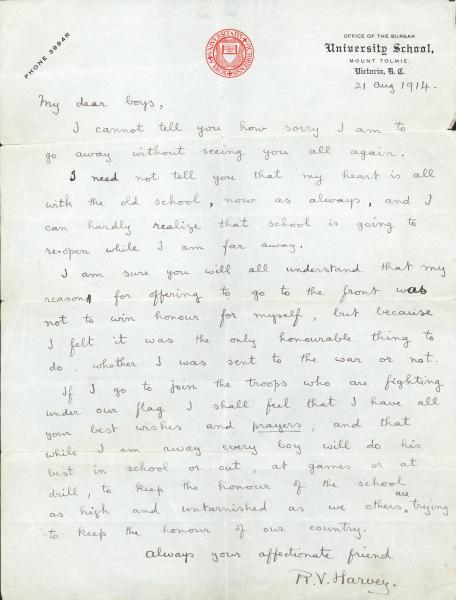 PHONE 3994R
OFFICE OF THE BURSAR
University School,
MOUNT TOLMIE.
Victoria, B. C.
21 Aug 1914.
My dear boys,
I cannot tell you how sorry I am to
go away without seeing you all again.
I need not tell you that my heart is all
with the old school, now as always, and I
can hardly realize that school is going to
re-open while I am far away.
I am sure you will all understand that my
reason for offering to go to the front was
not to win honour for myself, but because
I felt it was the only honourable thing to
do, whether I was sent to the war or not.
If I go to join the troops who are fighting
under our flag I shall feel that I have all
your best wishes and prayers, and that
while I am away every boy will do his
best in school or out, at games or at
drill, to keep the honour of the school
as high and untarnished as we others are trying
to keep the honour of our country.
Always your affectionate friend
R.V. Harvey.